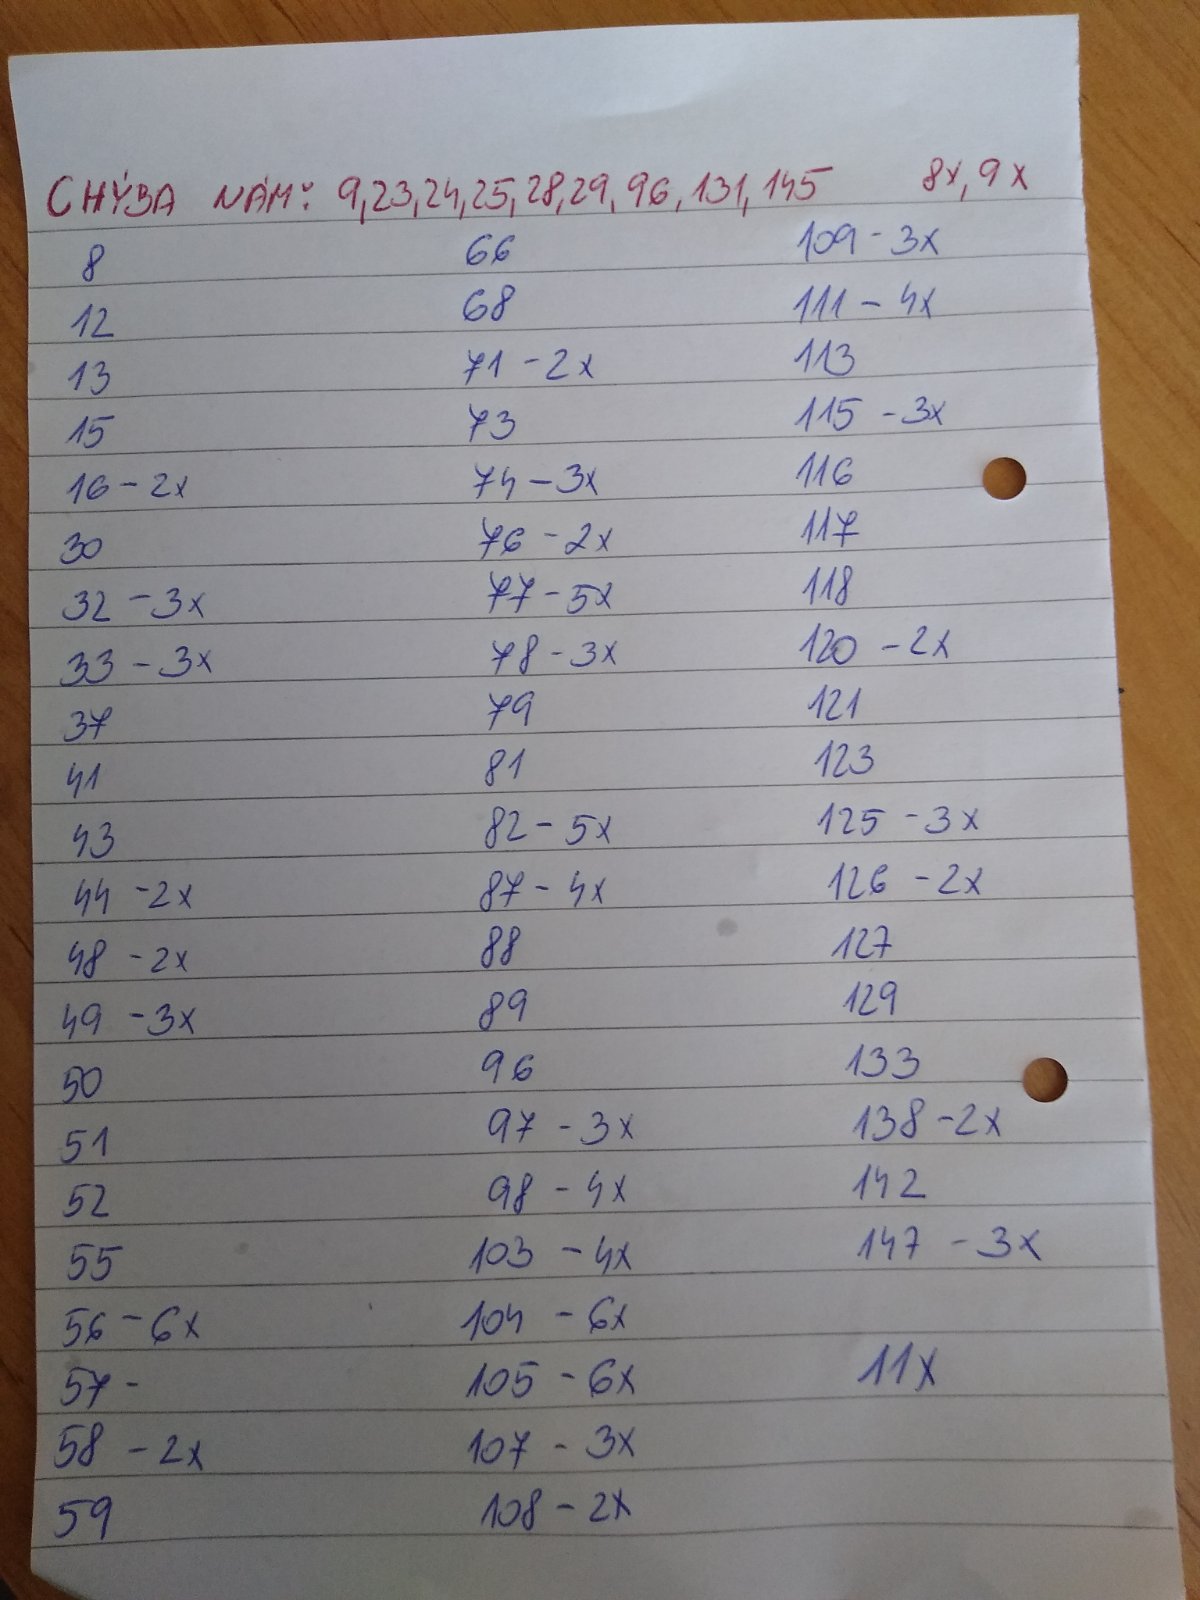 CHÝBA NÁM: 9,23,24,25,28,29,96,131,145 8x, 9x
8
12
13
15
16 - 2x
30
32 - 3x
33 - 3x
37
41
43
44 - 2x
48 - 2x
49 - 3x
50
51
52
55
56 - 6x
57 -
58 - 2x
59
66
68
71 - 2x
73
74 - 3x
76 - 2x
77 - 5x
78 - 3x
79
81
82 - 5x
87 - 4x
88
89
96
97 - 3x
98 - 4x
103 - 4x
104 - 6x
105 - 6x
107 - 3x
108 - 2x
109 - 3x
111 - 4x
113
115 - 3x
116
117
118
120 - 2x
121
123
125 - 3x
126 - 2x
127
129
133
138 - 2x
142
147 - 3x
11x